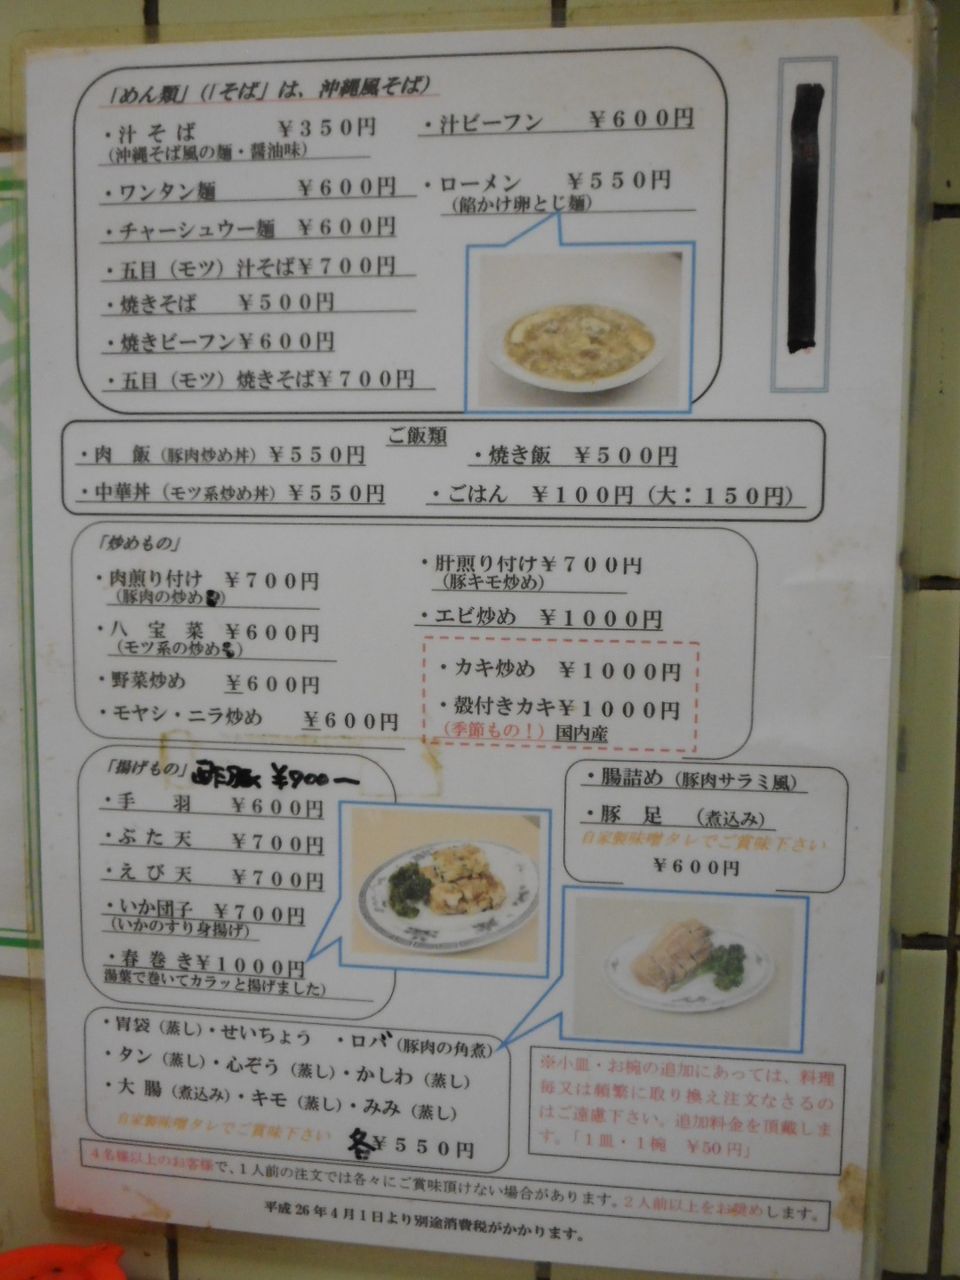 「めん類」(「そば」は、沖縄風そば)
・汁そば ￥350円
(沖縄そば風の麺・醤油味)
・汁ビーフン ￥600円
・ワンタン麺 ￥600円
・ローメン ￥550円
(餡かけ卵とじ麺)
・チャーシュウー麺 ￥600円
・五目(モツ)汁そば￥700円
・焼きそば ￥500円
・焼きビーフン￥600円
・五目(モツ)焼きそば￥700円
ご飯類
・肉 飯(豚肉炒め丼)￥550円
・焼き飯 ￥500円
・中華丼(モツ系炒め丼)￥550円
・ごはん ￥100円(大：150円)
「炒めもの」
・肉煎り付け ￥700円
(豚肉の炒め)
・八 宝 菜 ￥600円
(モツ系の炒め)
・野菜炒め ￥600円
・モヤシ・ニラ炒め ￥600円
・肝煎り付け￥700円
(豚キモ炒め)
・エビ炒め ￥1000円
・カキ炒め ￥1000円
・殻付きカキ￥1000円
(季節もの！)国内産
「揚げもの」酢豚 ￥900ー
・手 羽 ￥600円
・ぶた天 ￥700円
・えび天 ￥700円
・いか団子 ￥700円
(いかのすり身揚げ)
・春巻き￥1000円
湯葉で巻いてカラッと揚げました)
・腸詰め(豚肉サラミ風)
・豚 足 (煮込み)
自家製味噌タレでご賞味下さい
￥600円
・胃袋(蒸し)・せいちょう ・ロバ(豚肉の角煮)
・タン(蒸し)・心ぞう(蒸し)・かしわ(蒸し)
・大 腸(煮込み)・キモ(蒸し)・みみ(蒸し)
自家製味噌タレでご賞味下さい
各￥550円
※小皿・お椀の追加にあっては、料理
毎又は頻繁に取り換え注文なさるの
はご遠慮下さい。追加料金を頂戴しま
す。「1皿・1椀 ￥50円」
4名様以上のお客様で、1人前の注文では各々にご賞味頂けない場合があります。2人前以上をお奨めします。
平成26年4月1日より別途消費税がかかります。